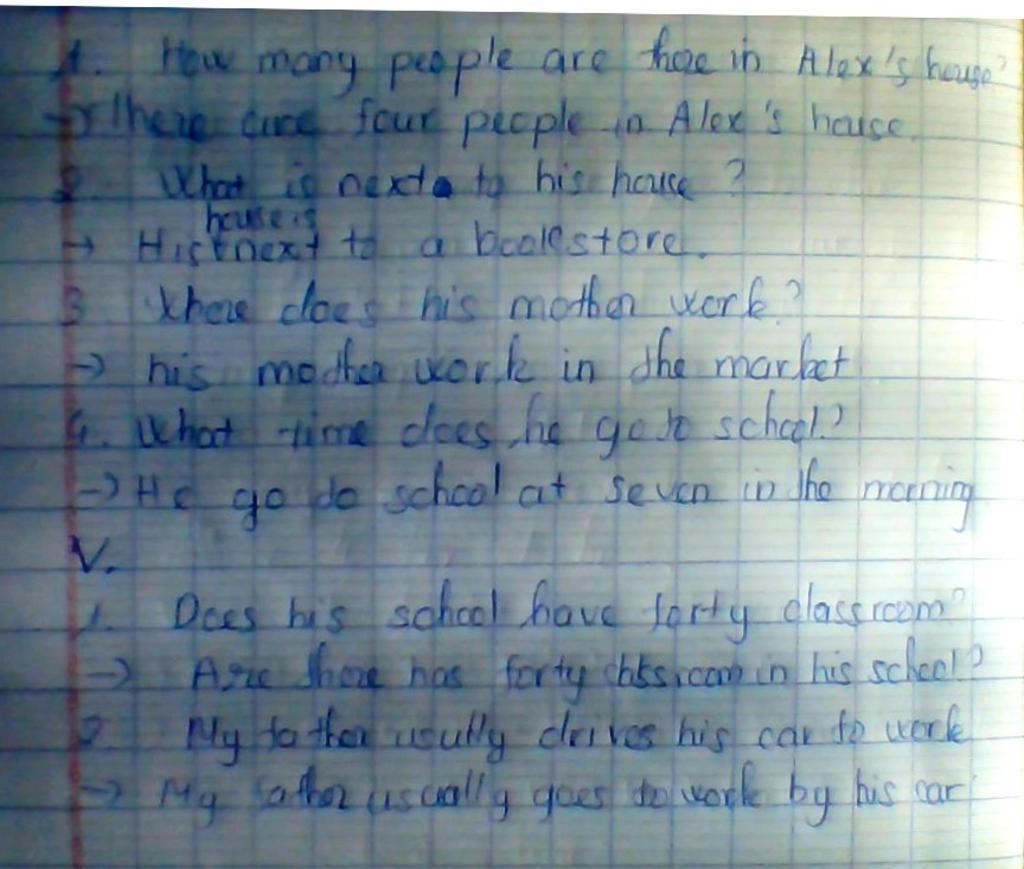 1. How many people are there in Alex's house?
→ There are four people in Alex's house.
2. What is next to his house?
house is
→ His next to a bookstore.
3. Where does his mother work?
→ his mother work in the market
4. What time does he go to school?
→ He go to school at seven in the morning
V.
1. Does his school have forty classroom?
→ Are there has forty classroom in his school?
2. My father usully drives his car to work
→ My father usually goes to work by his car